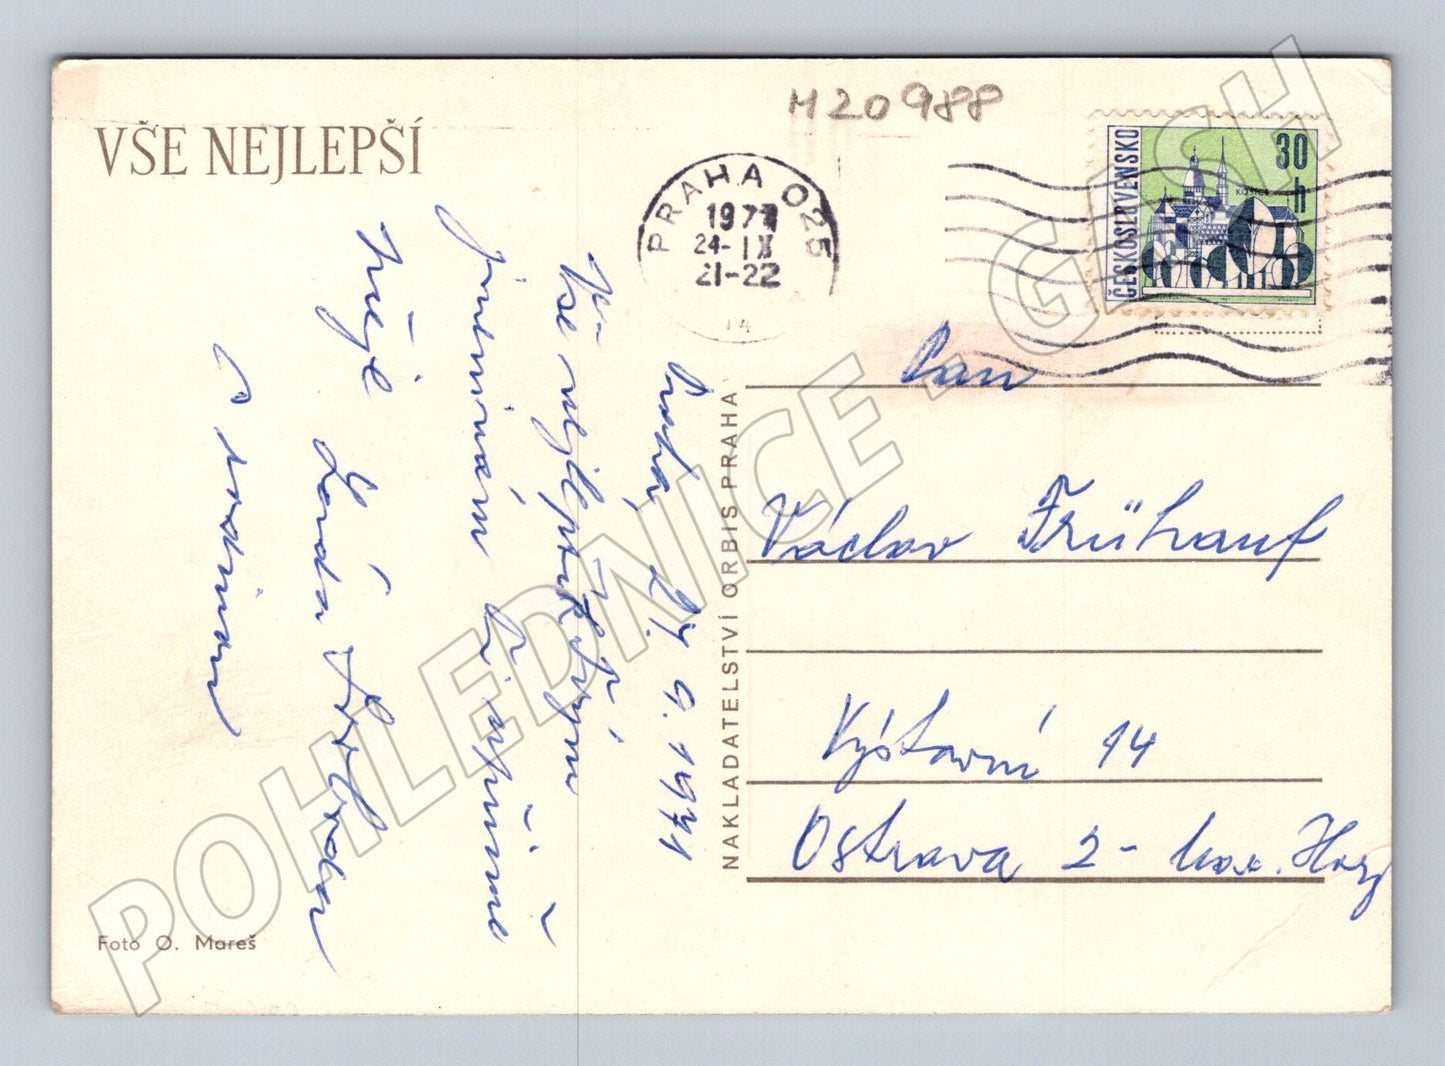 H20988
VŠE NEJLEPŠÍ
PRAHA 025
1971
24-IX
21-22
14
ČESKOSLOVENSKO
30
h
KOŠICE
Praha, 24. 9. 1971
Vše nejlepší k Tvým
jmeninám Ti upřímně
přeje Láda
s rodinou
Pan
Václav Frühauf
Výstavní 14
Ostrava 2 -
NAKLADATELSTVÍ ORBIS PRAHA
Foto O. Mareš
POHLEDNICE - GASH